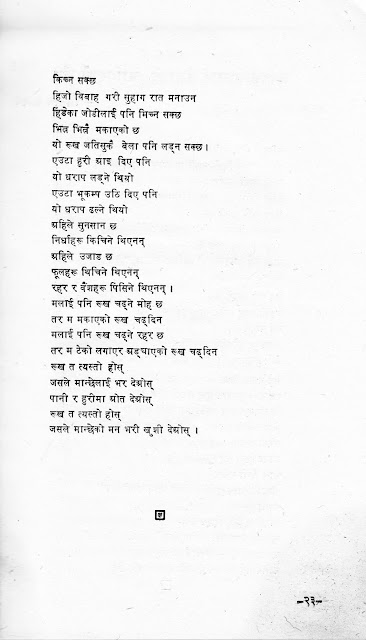 किच्न सक्छ
हिजो विवाह गरी सुहाग रात मनाउन
हिंडेका जोडीलाई पनि मिच्न सक्छ
भित्र भित्रै मकाएको छ
यो रूख जतिसुकै बेला पनि लड्न सक्छ।
एउटा हुरी आइ दिए पनि
यो धराप लड्ने थियो
एउटा भूकम्प उठि दिए पनि
यो धराप ढल्ने थियो
अहिले सुनसान छ
निर्धाहरू किचिने थिएनन्
अहिले उजाड छ
फूलहरू थिचिने थिएनन्
रहर र बैंशहरू पिसिने थिएनन् ।
मलाई पनि रूख चढ्ने मोह छ
तर म मकाएको रूख चढ्दिन
मलाई पनि रूख चढ्ने रहर छ
तर म टेको लगाएर अड्याएको रूख चढ्दिन
रूख त त्यस्तो होस्
जसले मान्छेलाई भर देओस्
पानी र हुरीमा ओत देओस्
रूख त त्यस्तो होस्
जसले मान्छेको मन भरी खुशी देओस् ।
-२३-